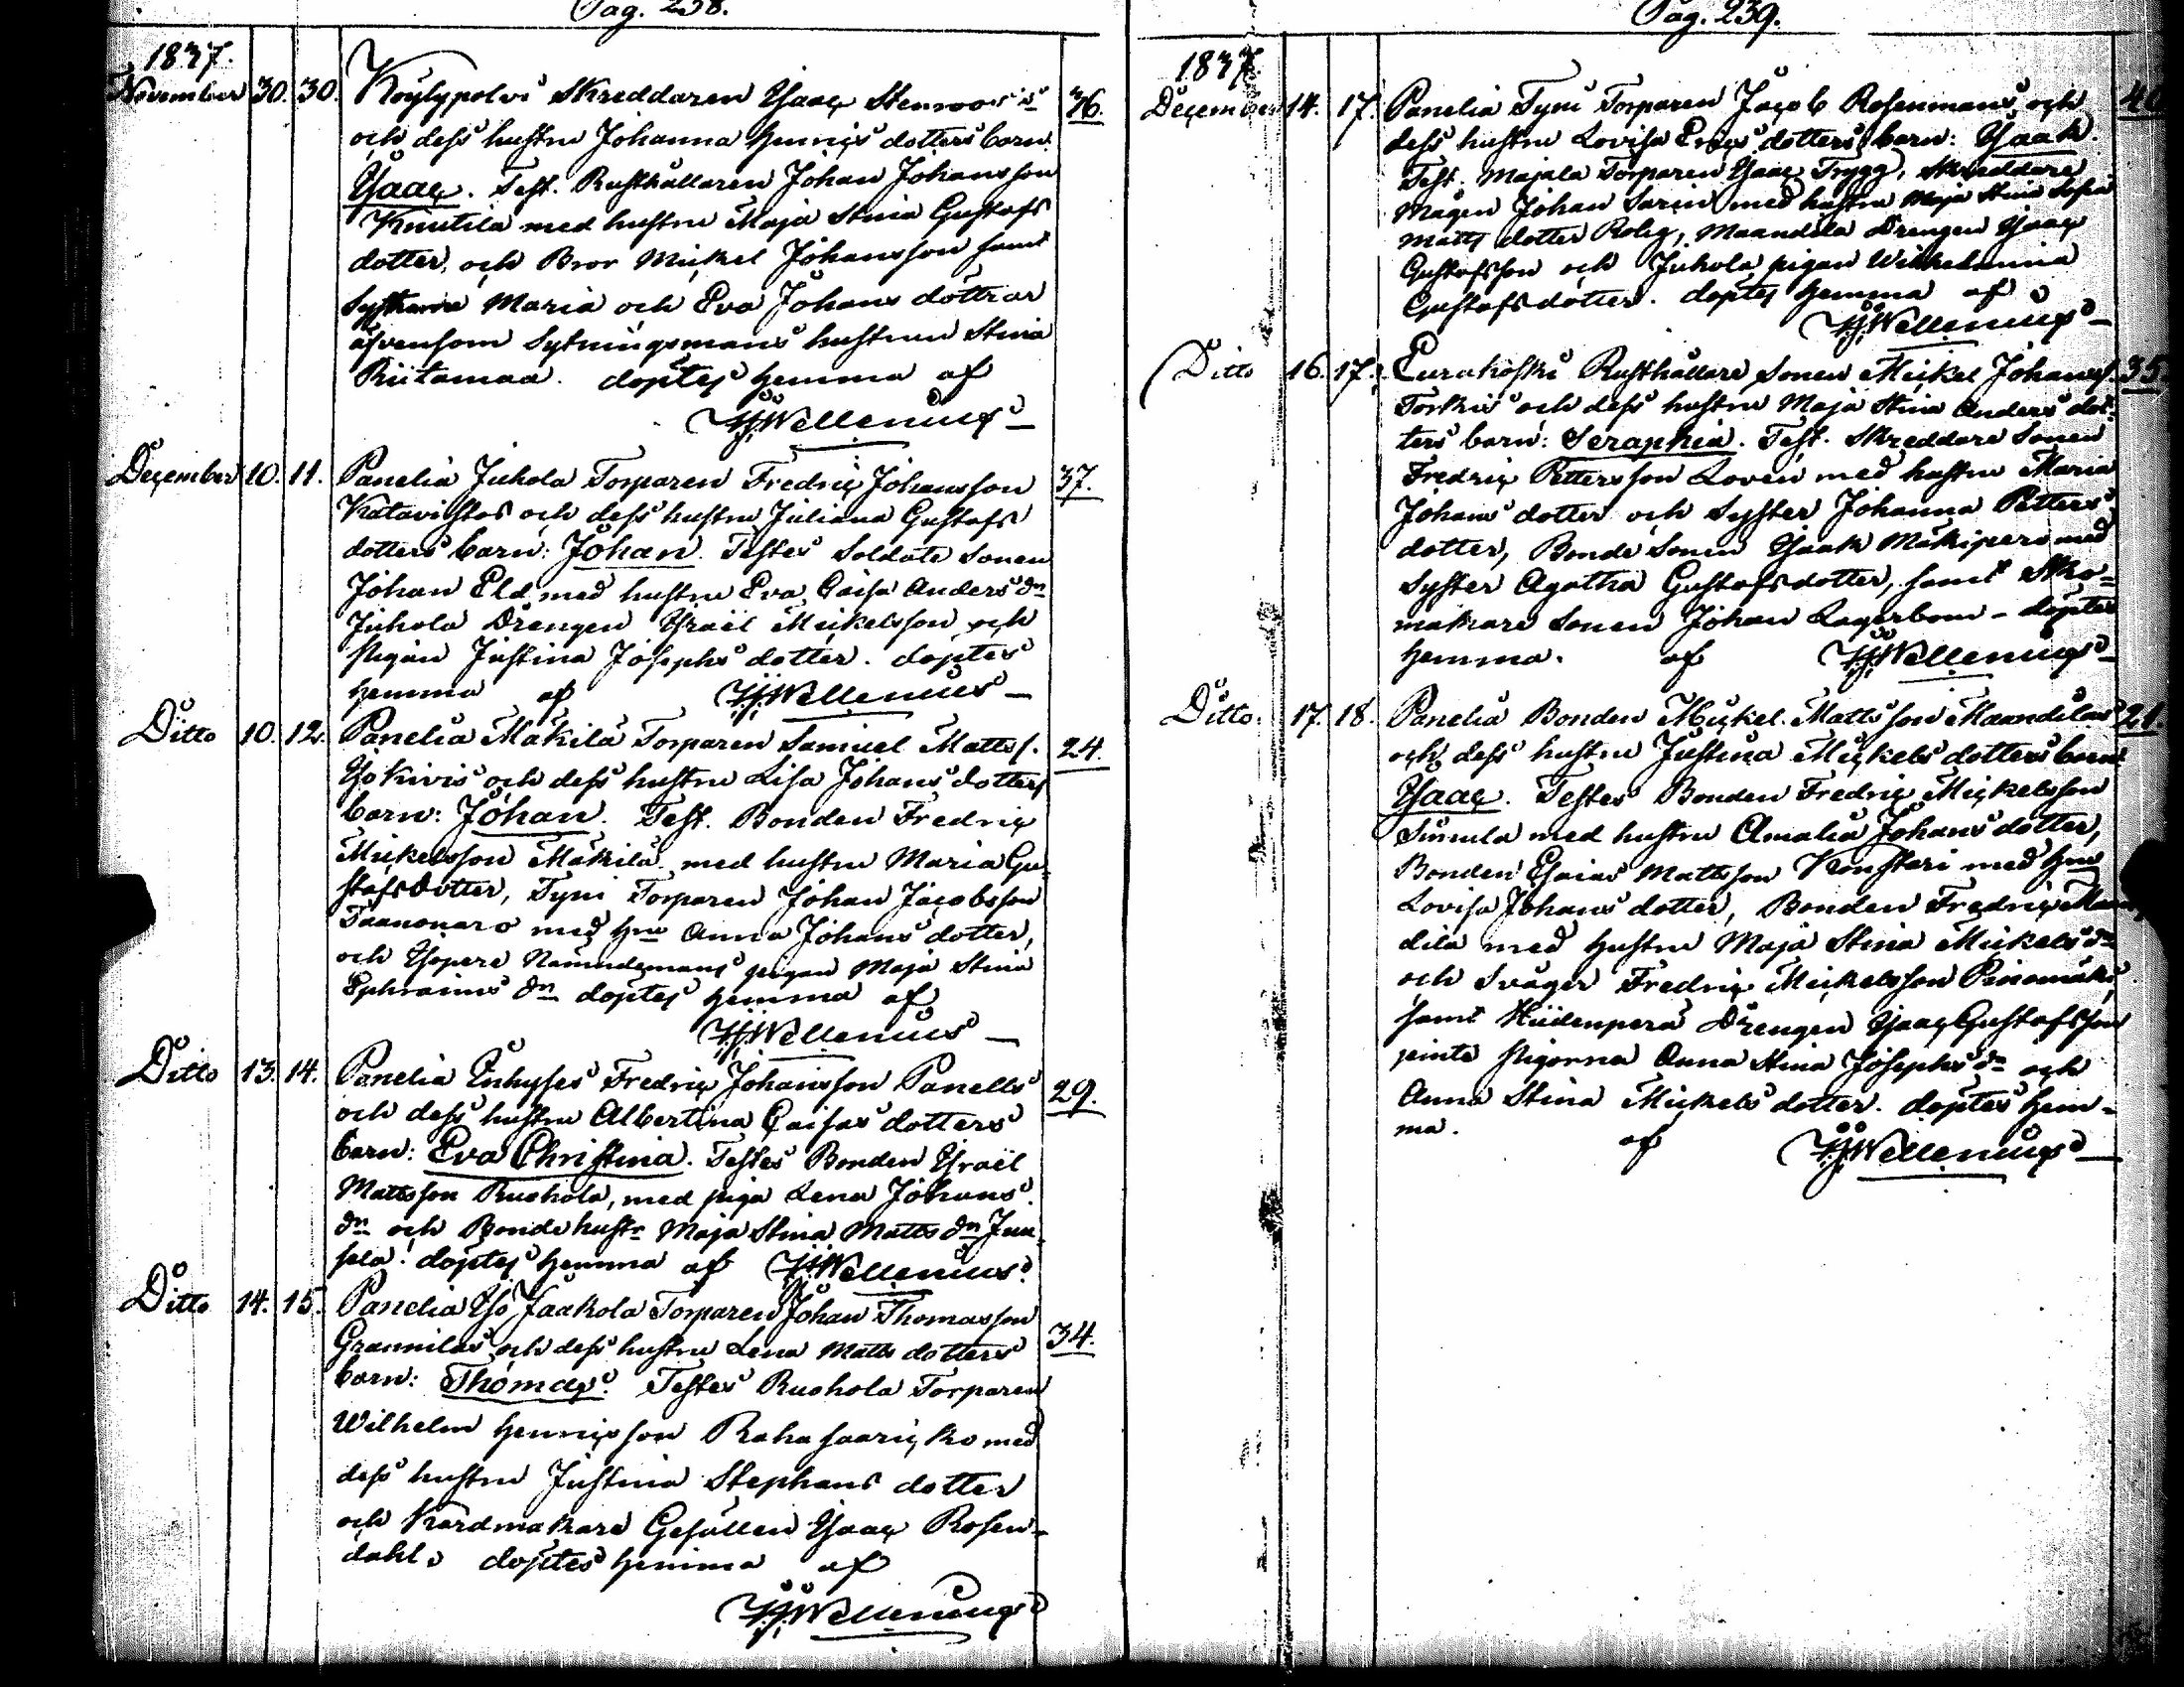 Pag. 238.
1837.
November 30. 30. Köylypolvi Skreddaren Ysaac Stenroos's 36.
och dess hustru Johanna Henrics dotters barn:
Ysaac. Test. Rusthållaren Johan Johansson
Knutila med hustru Maja Stina Gustafs
dotter, och Bror Mickel Johansson samt
Systrarne Maria och Eva Johans döttrar
äfvensom Sytningsmans hustrun Stina
Riitamaa. döptes hemma af
Wellenius
December 10. 11. Panelia Juhola Torparen Fredric Johansson 37.
Katavistos och dess hustru Juliana Gustafs
dotters barn: Johan. Testes Soldate Sonen
Johan Eld med hustru Eva Caisa Anders dr
Juhola Drengen Ysraël Mickelsson och
pigan Justina Josephs dotter. döptes
hemma af Wellenius
Ditto 10. 12. Panelia Mäkilä Torparen Samuel Matts s. 24.
Yso Kivis och dess hustru Lisa Johans dotters
barn: Johan. Test. Bonden Fredric
Mickelsson Mäkilä med hustru Maria Gu-
stafsdotter, Tyni Torparen Johan Jacobsson
Taanonaro med Hru Anna Johans dotter,
och Ysopere Nämndemans pigan Maja Stina
Ephraims dr döptes hemma af
Wellenius
Ditto 13. 14. Panelia Inhyses Fredric Johansson Panells 29.
och dess hustru Albertina Caisas dotters
barn: Eva Christina. Testes Bonden Ysraël
Mattsson Ruohola, med piga Lena Johans
dr och Bonde hustr Maja Stina Matts dr Juu-
sela. döptes hemma af Wellenius
Ditto 14. 15. Panelia Yso Jaakola Torparen Johan Thomasson 34.
Grannilas och dess hustru Lena Matts dotters
barn: Thomas. Testes Ruohola Torparen
Wilhelm Henricsson Rahasaaricko med
dess hustru Justina Stephans dotter
och Kardmakare Gesällen Ysaac Rosen-
dahl. döptes hemma af
Wellenius
Pag. 239.
1837.
December 14. 17. Panelia Tyni Torparen Jacob Rosenmans och 40
dess hustru Lovisa Erics dotters barn: Ysaak.
Test. Majala Torparen Ysaac Trygg, Skreddare
Mågen Johan Sarin med hustru Maja Stina Sofia
Matts dotter Rolig, Maandila Drengen Ysaac
Gustafsson och Juhola pigan Wilhelmina
Gustafsdotter. döptes hemma af
Wellenius
Ditto 16. 17. Eurakoski Rusthållare Sonen Mickel Johans s. 35
Torkis och dess hustru Maja Stina Anders dot-
ters barn: Seraphia. Test. Skreddare Sonen
Fredric Pettersson Loven med hustru Maria
Johans dotter och Syster Johanna Petters
dotter, Bonde Sonen Ysaak Mäkipere med
Syster Agatha Gustafsdotter, samt Sko-
makare Sonen Johan Lagerbom - döptes
hemma. af Wellenius
Ditto 17. 18. Panelia Bonden Mickel Mattsson Maandilas 21.
och dess hustru Justina Mickels dotters barn
Ysaac. Testes Bonden Fredric Mickelsson
Sinnula med hustru Amalia Johans dotter,
Bonden Esaias Mattsson Konstari med Hru
Lovisa Johans dotter, Bonden Fredric Maan-
dila med hustru Maja Stina Mickels dr
och Svåger Fredric Mickelsson Pinomäki,
samt Hiidenperä Drengen Ysaac Gustafsson
jemte pigorna Anna Stina Josephs dr och
Anna Stina Mickels dotter. döptes hem-
ma. af Wellenius